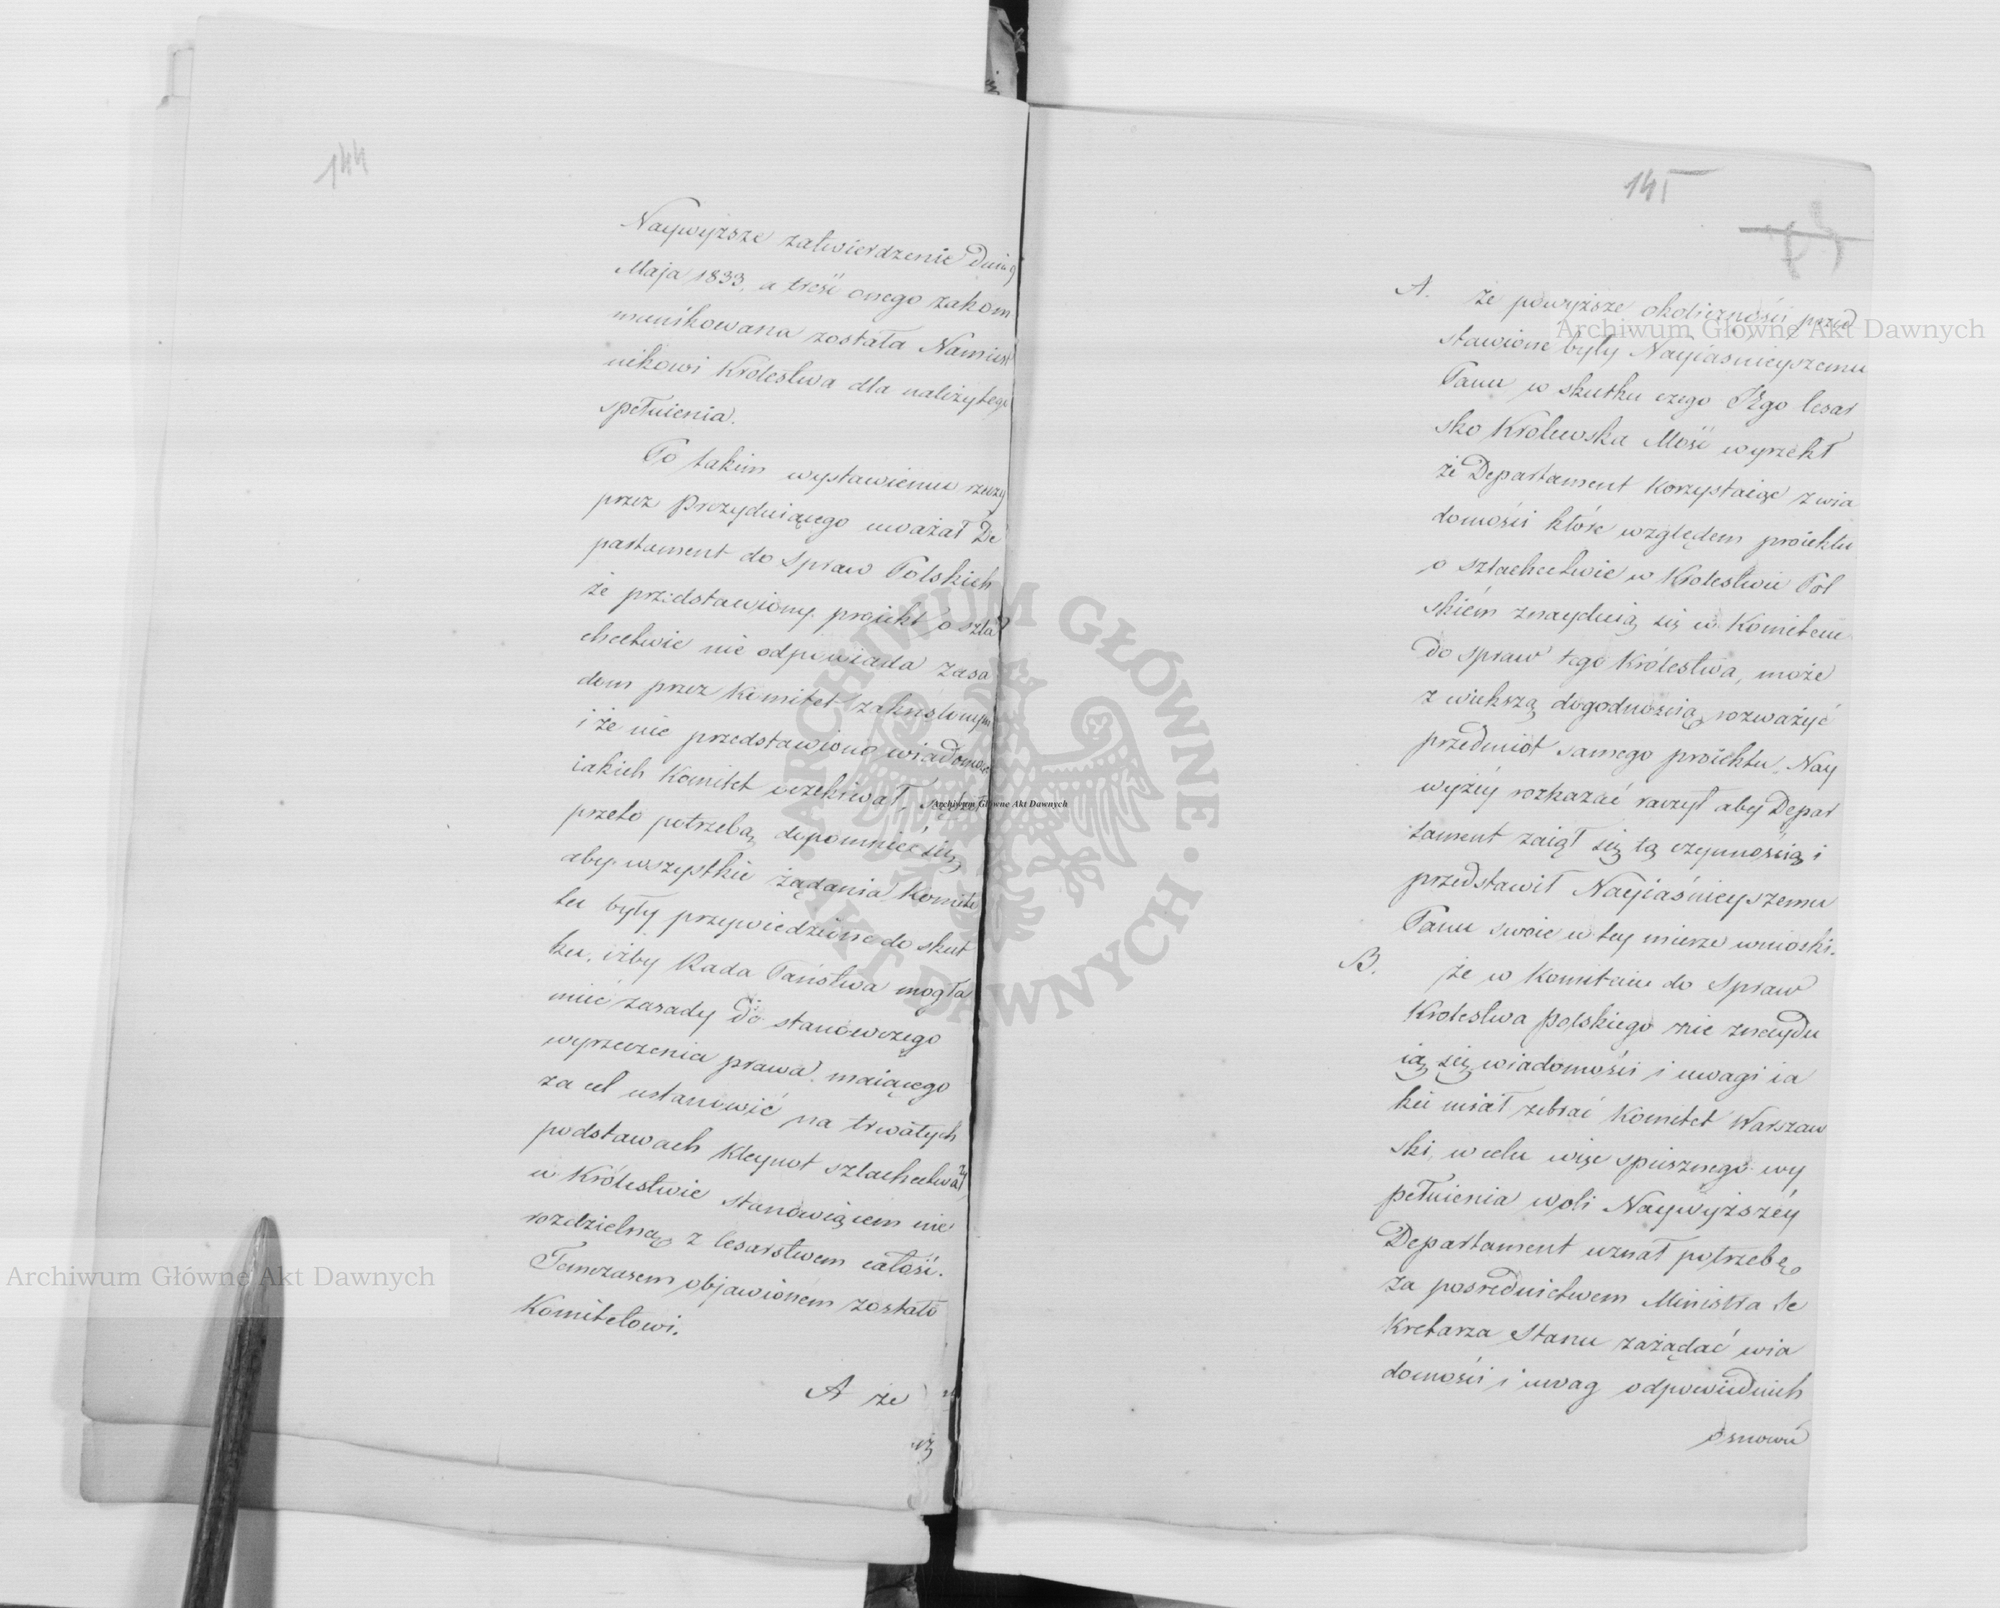 144
Naywyższe zatwierdzenie Dnia 9
Maja 1833. a treść onego zakom
munikowana została Namiest
nikowi Królestwa dla należytego
spełnienia.
Po takim wystawieniu rzeczy
przez Prezyduiącego uważał De
partament do Spraw Polskich
że przedstawiony proiekt o szla
chectwie nie odpowiada zasa
dom przez Komitet zakreślonym
i że nie przedstawiono wiadomości
iakich Komitet oczekiwał,
przeto potrzebą dopomnieć się
aby wszystkie żądania Komite
tu były przywiedzione do skut
ku, iżby Rada Państwa mogła
mieć zasady do stanowczego
wyrzeczenia prawa, maiącego
za cel ustanowić na trwałych
podstawach Kleynot szlachectwa
w Królestwie stanowiącem nie
rozdzielną z Cesarstwem całość.
Tymczasem objawionem zostało
Komitetowi.
A że
145
A. że powyższe okoliczności przed
stawione były Nayiaśnieyszemu
Panu w skutku czego Jego Cesar
sko Królewska Mość wyrzekł
że Departament korzystaiąc z wia
domości które względem proiektu
o szlachectwie w Królestwie Pol
skiém znayduią się w Komitecie
do spraw tego Królestwa, może
z większą dogodnością rozważyć
przedmiot samego proiektu, Nay
wyżéy rozkazać raczył aby Depar
tament zaiął się tą czynnością i
przedstawił Nayiaśnieyszemu
Panu swoie w tey mierze wnioski.
B. że w Komitecie do Spraw
Królestwa Polskiego nie znaydu
ią się wiadomości i uwagi ia
kie miał zebrać Komitet Warszaw
ski, w celu więc spiesznego wy
pełnienia woli Naywyższéy
Departament uznał potrzebę
za pośrednictwem Ministra Se
kretarza Stanu zażądać wia
domości i uwag odpowiednich
osnowie
Archiwum Główne Akt Dawnych
Archiwum Główne Akt Dawnych
Archiwum Główne Akt Dawnych
ARCHIWUM GŁÓWNE · AKT DAWNYCH ·